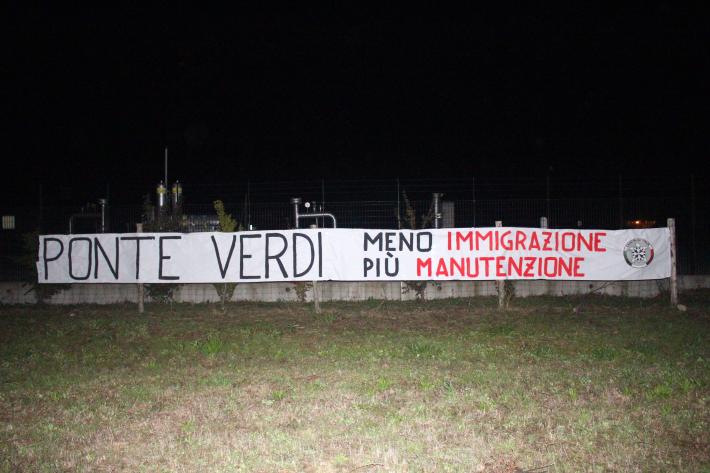 PONTE VERDI
MENO IMMIGRAZIONE
PIÙ MANUTENZIONE